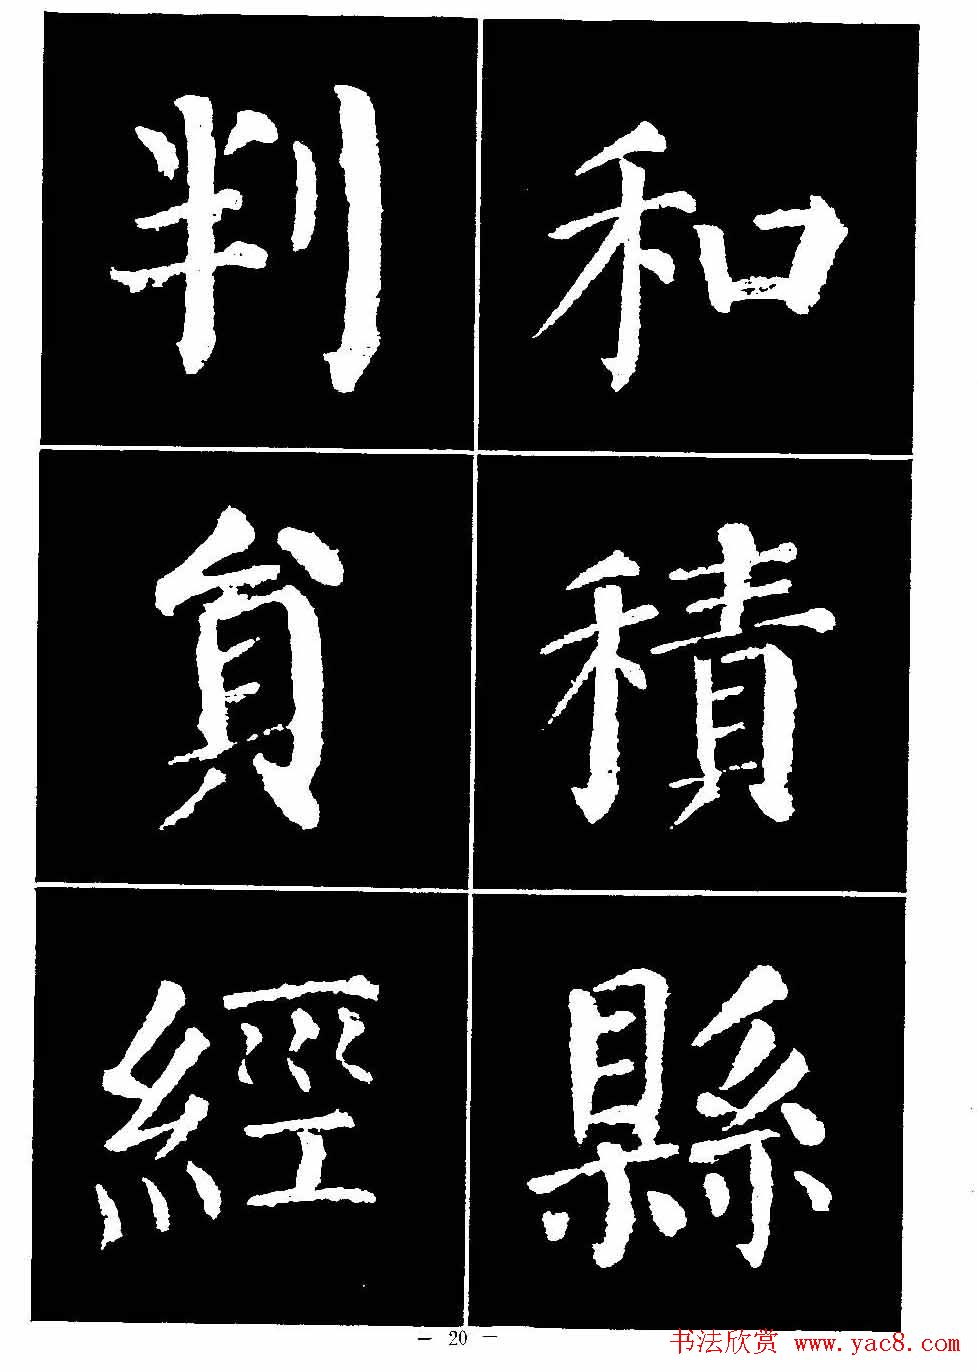 和積縣
判貟經
— 20 —
书法欣赏 www.yac8.com